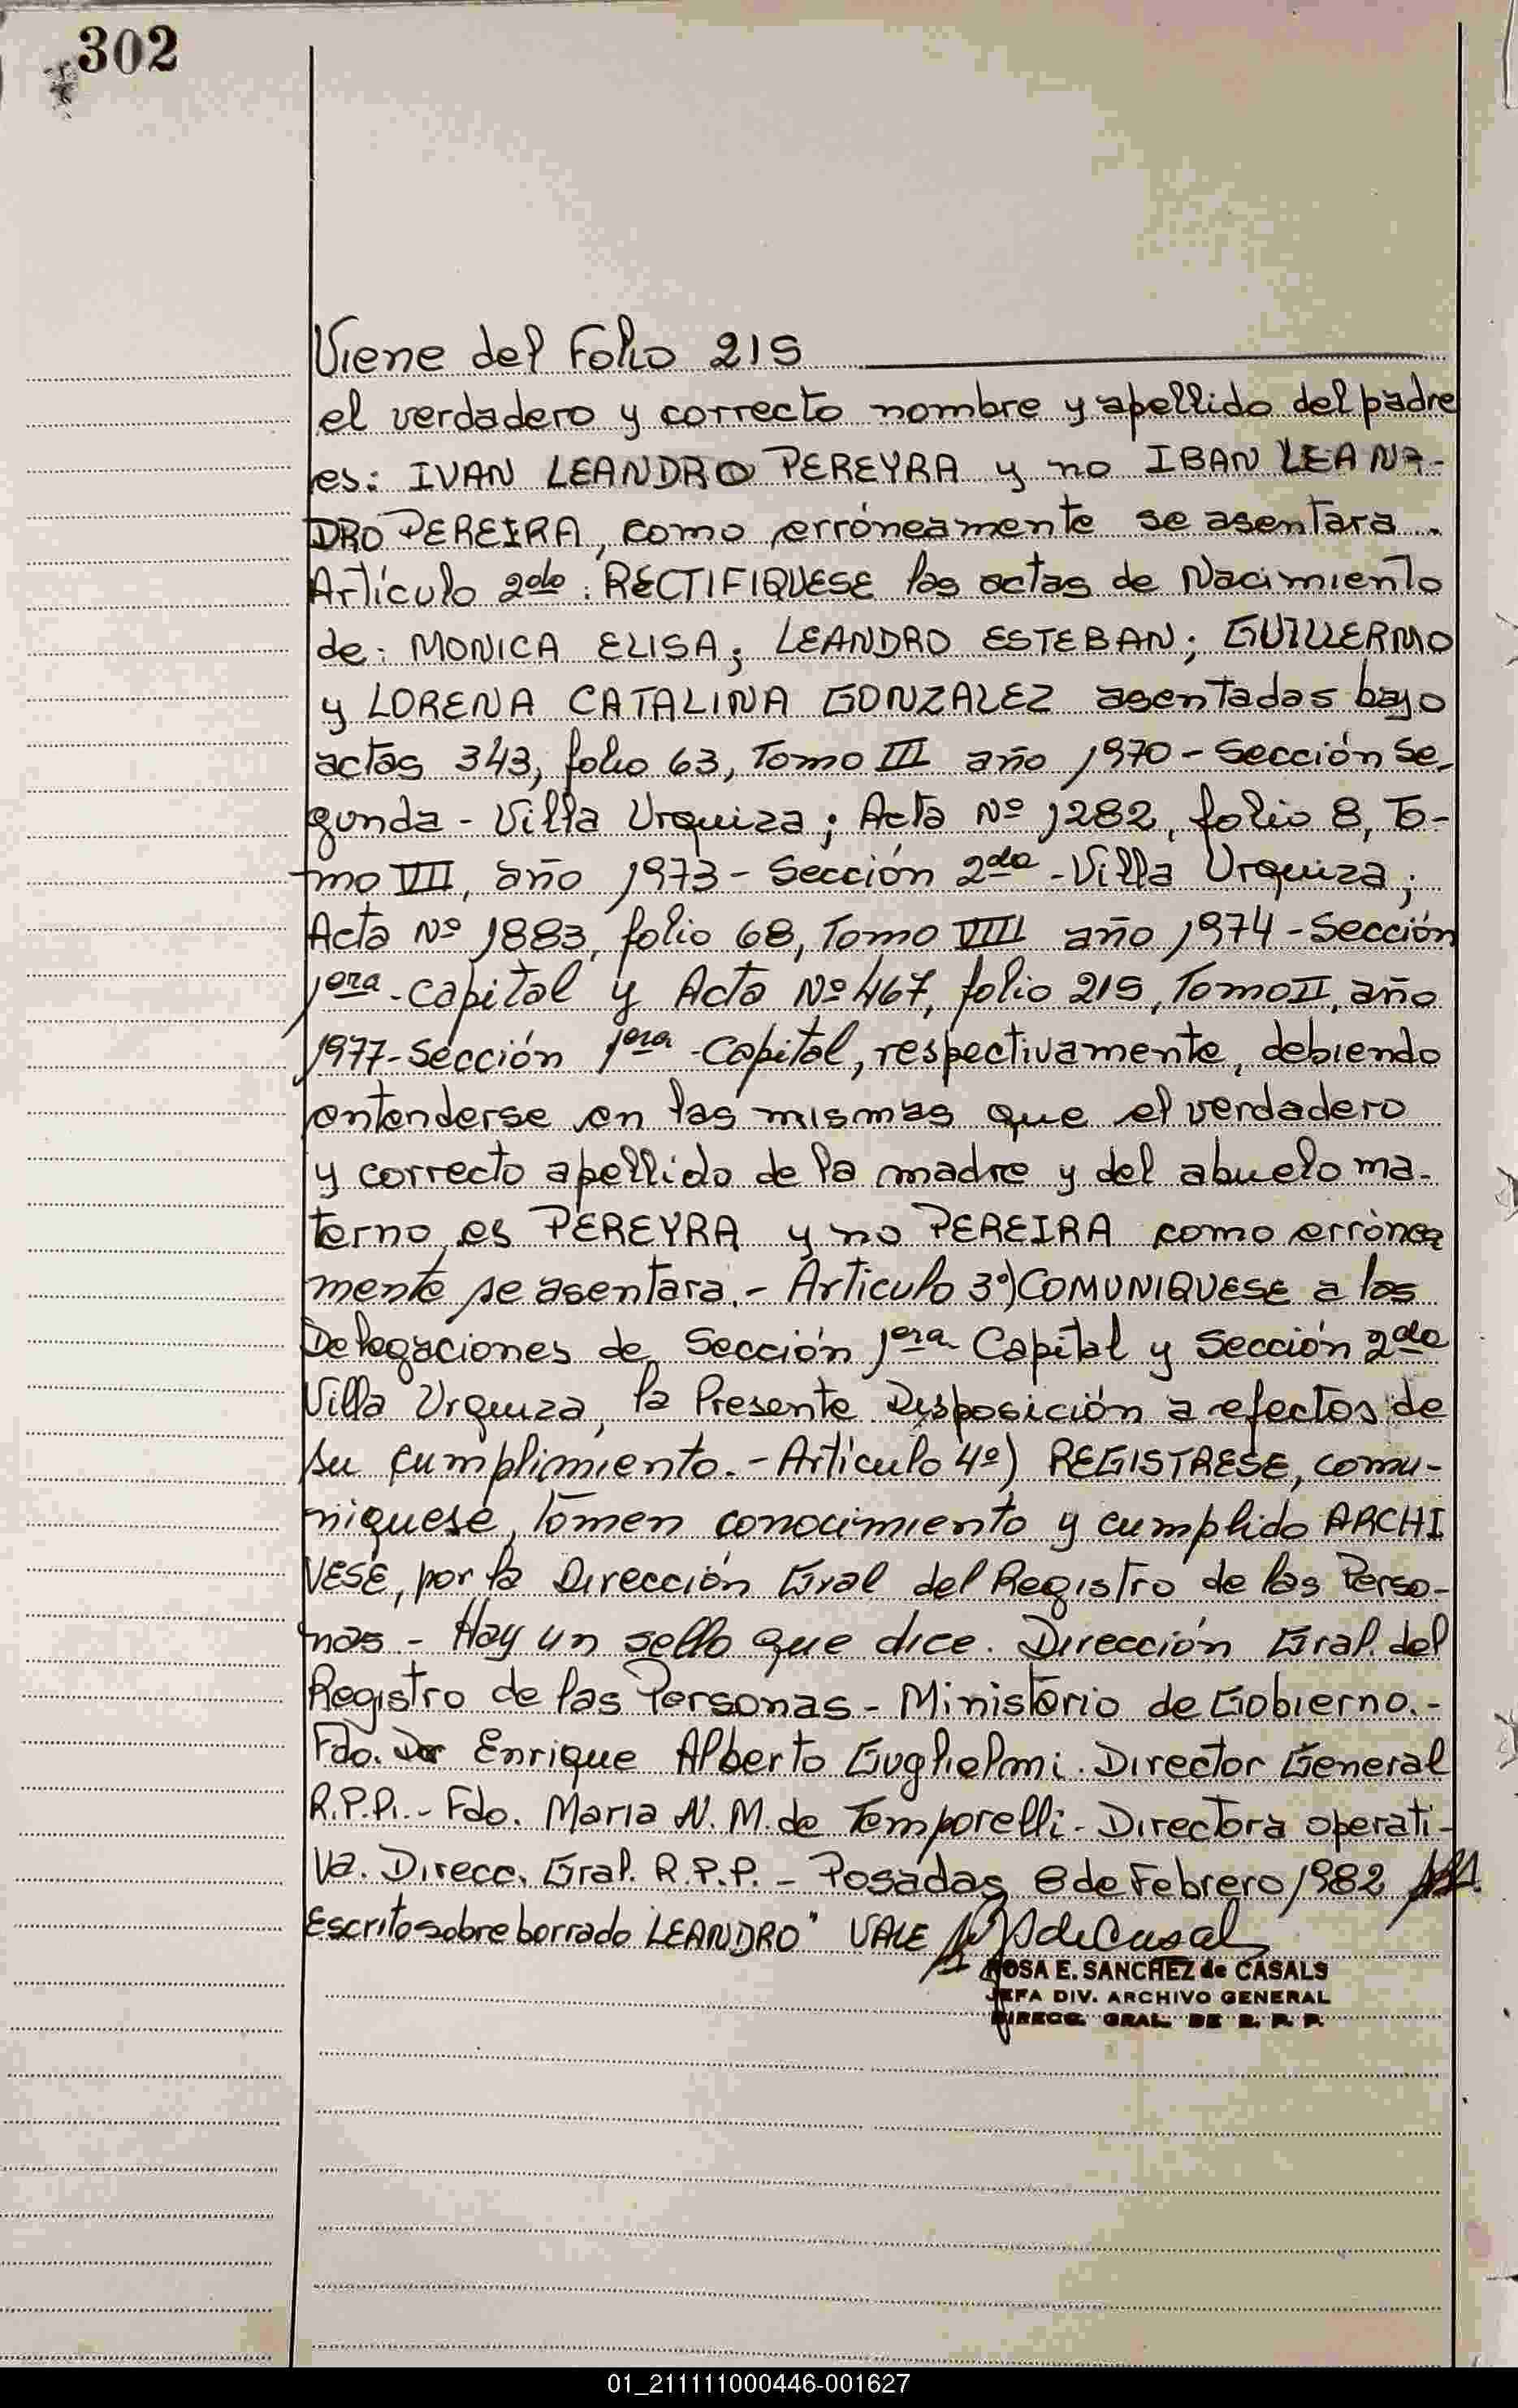 302
Viene del Folio 215
el verdadero y correcto nombre y apellido del padre
es: IVAN LEANDRO PEREYRA y no IBAN LEAN-
DRO PEREIRA, como erróneamente se asentara.-
Artículo 2do: RECTIFIQUESE las actas de Nacimiento
de: MONICA ELISA; LEANDRO ESTEBAN; GUILLERMO
y LORENA CATALINA GONZALEZ asentadas bajo
actas 343, folio 63, Tomo III año 1970 - Sección Se-
gunda - Villa Urquiza; Acta Nº 1282, folio 8, To-
mo VII, año 1973 - Sección 2da - Villa Urquiza;
Acta Nº 1883, folio 68, Tomo VIIII año 1974 - Sección
1era - Capital y Acta Nº 467, folio 215, Tomo II, año
1977 - Sección 1era - Capital, respectivamente, debiendo
entenderse en las mismas que el verdadero
y correcto apellido de la madre y del abuelo ma-
terno es PEREYRA y no PEREIRA como errónea
mente se asentara.- Artículo 3º) COMUNIQUESE a las
Delegaciones de Sección 1era Capital y Sección 2da
Villa Urquiza, la Presente Disposición a efectos de
su cumplimiento.- Artículo 4º) REGISTRESE, comu-
niquese, tomen conocimiento y cumplido ARCHI
VESE, por la Dirección Gral del Registro de las Perso-
nas - Hay un sello que dice. Dirección Gral. del
Registro de las Personas - Ministerio de Gobierno.-
Fdo. Dr Enrique Alberto Guglielmi. Director General
R.P.P.- Fdo. Maria N. M. de Temporelli - Directora operati-
va. Direcc. Gral. R.P.P. - Posadas, 8 de Febrero 1982
Escrito sobre borrado LEANDRO" VALE
ROSA E. SANCHEZ de CASALS
JEFA DIV. ARCHIVO GENERAL
DIRECC. GRAL. DE R. P. P.
01_211111000446-001627